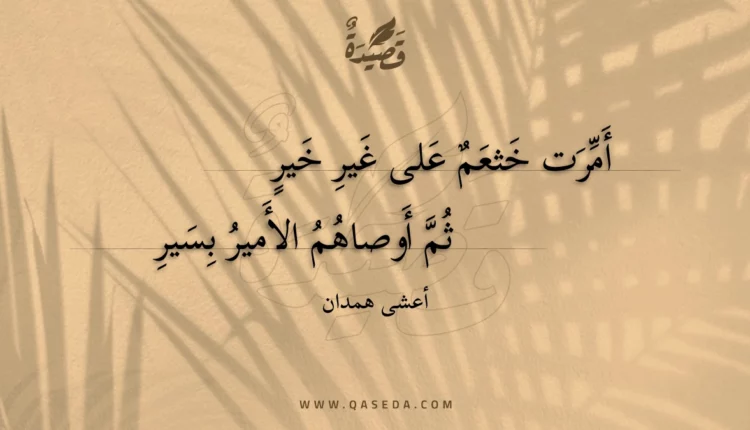 قَصِيدَةٌ
أَمِّرَت خَثعَمٌ عَلى غَيرِ خَيرٍ
ثُمَّ أَوصاهُمُ الأَميرُ بِسَيرِ
أعشى همدان
WWW.QASEDA.COM